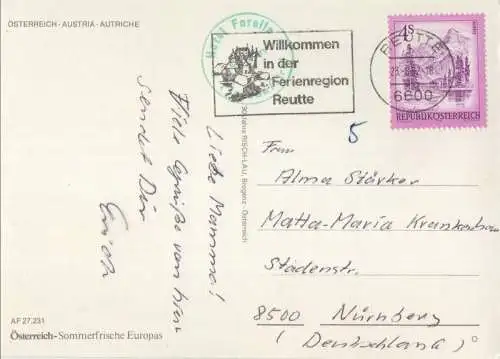 ÖSTERREICH - AUSTRIA - AUTRICHE
Hotel Forelle
Willkommen
in der
Ferienregion
Reutte
REUTTE
6600
4S
REPUBLIK ÖSTERREICH
5
Liebe Mamma!
Viele Grüße von hier
sendet Dir
Erich
RISCH-LAU, Bregenz - Österreich
Frau
Alma Stärker
Matta-Maria Krankenhau
Stadenstr.
8500 Nürnberg
(Deutschland)
AF 27.231
Österreich-Sommerfrische Europas